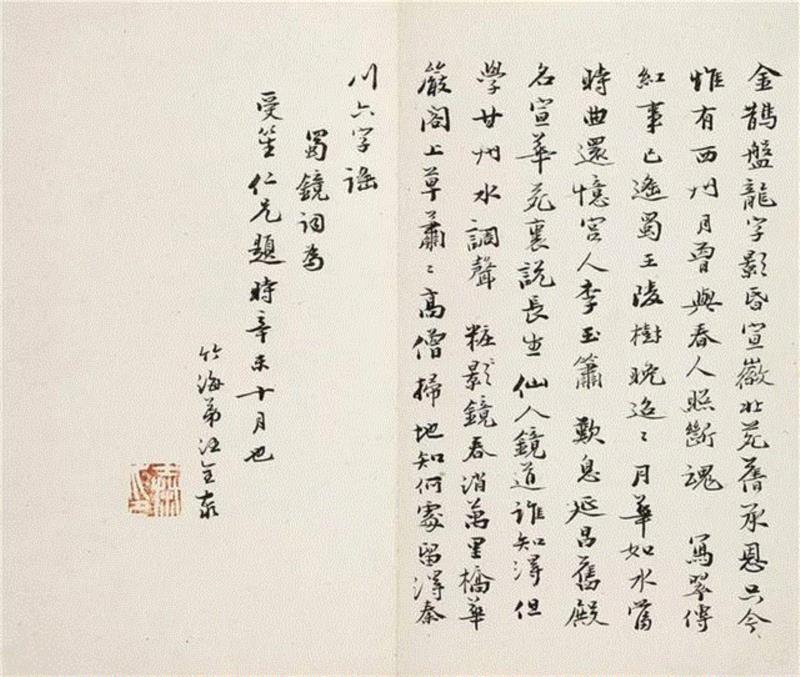 金鵲盤龍字影昏宣徽北苑舊承恩只今
惟有西州月曾與春人照斷魂 寫翠傳
紅事已遙蜀王陵樹晚迢〻月華如水當
時曲還憶宮人李玉簫 歎息延昌舊殿
名宣華苑裏說長生仙人鏡道誰知得但
學甘州水調聲 粧影鏡春消萬里橋華
嚴閣上草蕭〻高僧掃地知何處留得秦
川六字謠
蜀鏡詞為
受笙仁兄題時辛未十月也
竹海弟汪全泰